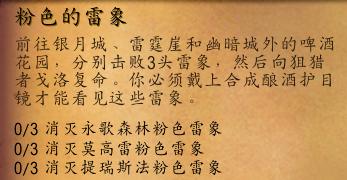 粉色的雷象
前往银月城、雷霆崖和幽暗城外的啤酒
花园，分别击败3头雷象，然后向狙猎
者戈洛复命。你必须戴上合成酿酒护目
镜才能看见这些雷象。
0/3 消灭永歌森林粉色雷象
0/3 消灭莫高雷粉色雷象
0/3 消灭提瑞斯法粉色雷象